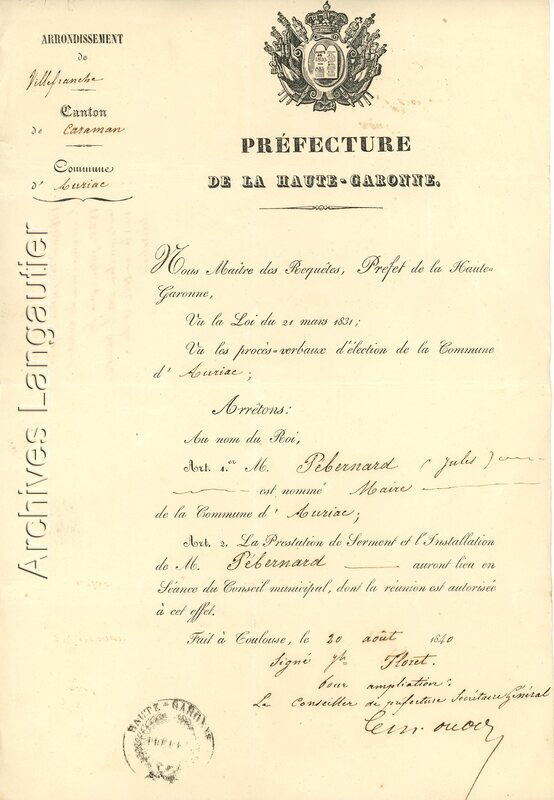 ARRONDISSEMENT
de
Villefranche
Canton
de Caraman
Commune
d' Auriac
PRÉFECTURE
DE LA HAUTE-GARONNE.
Nous Maître des Requêtes, Préfet de la Haute-
Garonne,
Vu la Loi du 21 mars 1831;
Vu les procès-verbaux d'élection de la Commune
d' Auriac;
Arrêtons:
Au nom du Roi,
Art. 1.er M. Pébernard (Jules)
est nommé Maire
de la Commune d' Auriac;
Art. 2. La Prestation de Serment et l'Installation
de M. Pébernard auront lieu en
Séance du Conseil municipal, dont la réunion est autorisée
à cet effet.
Fait à Toulouse, le 20 août 1840
Signé Floret.
Pour ampliation:
Le Conseiller de préfecture Secrétaire Général
HAUTE-GARONNE
Archives Langautier